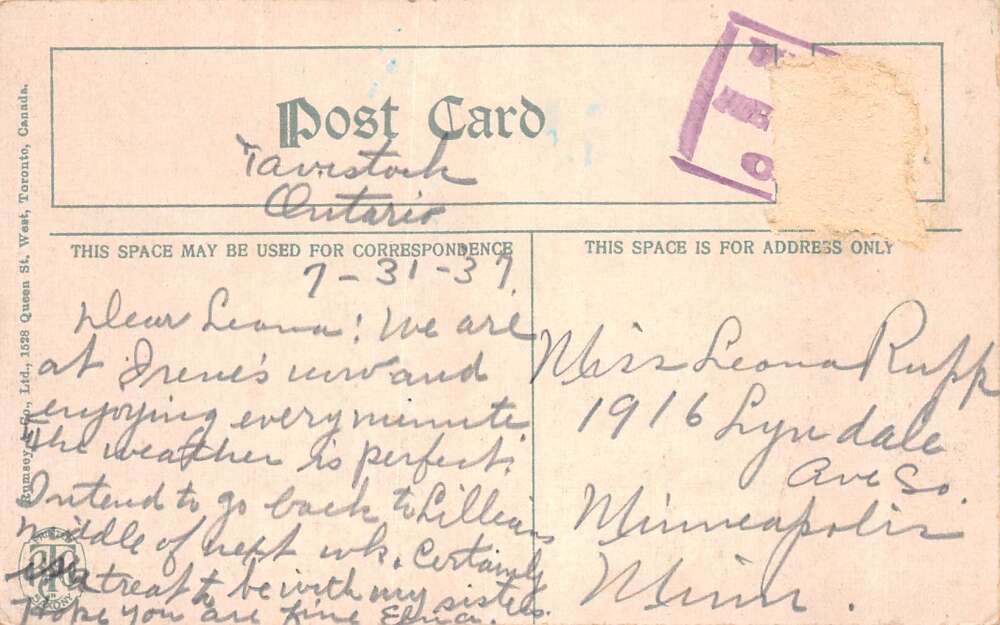 Post Card
Tavistock
Ontario
THIS SPACE MAY BE USED FOR CORRESPONDENCE
THIS SPACE IS FOR ADDRESS ONLY
7-31-37.
Dear Leona: We are
at Irene's now and
enjoying every minute
the weather is perfect.
Intend to go back to Lillians
middle of next wk. Certainly
a treat to be with my sisters.
Hope you are fine
Miss Leona Rupp
1916 Lyndale
Ave So.
Minneapolis
Minn.
Rumsey & Co., Ltd., 1528 Queen St. West, Toronto, Canada.